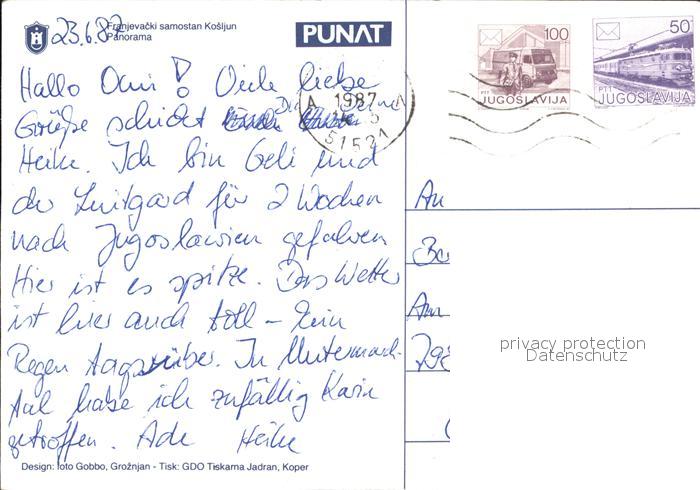 23.6.87
Franjevački samostan Košljun
Panorama
PUNAT
100
PTT JUGOSLAVIJA
50
PTT JUGOSLAVIJA
1987
51521
Hallo Omi! Viele liebe
Grüße schickt Dir Deine
Heike. Ich bin Geli und
der Luitgard für 2 Wochen
nach Jugoslawien gefahren
Hier ist es spitze. Das Wetter
ist hier auch toll – kein
Regen tagsüber. In Untermarch-
tal habe ich zufällig Karin
getroffen. Ade Heike
An
Am
privacy protection
Datenschutz
Design: foto Gobbo, Grožnjan - Tisk: GDO Tiskarna Jadran, Koper